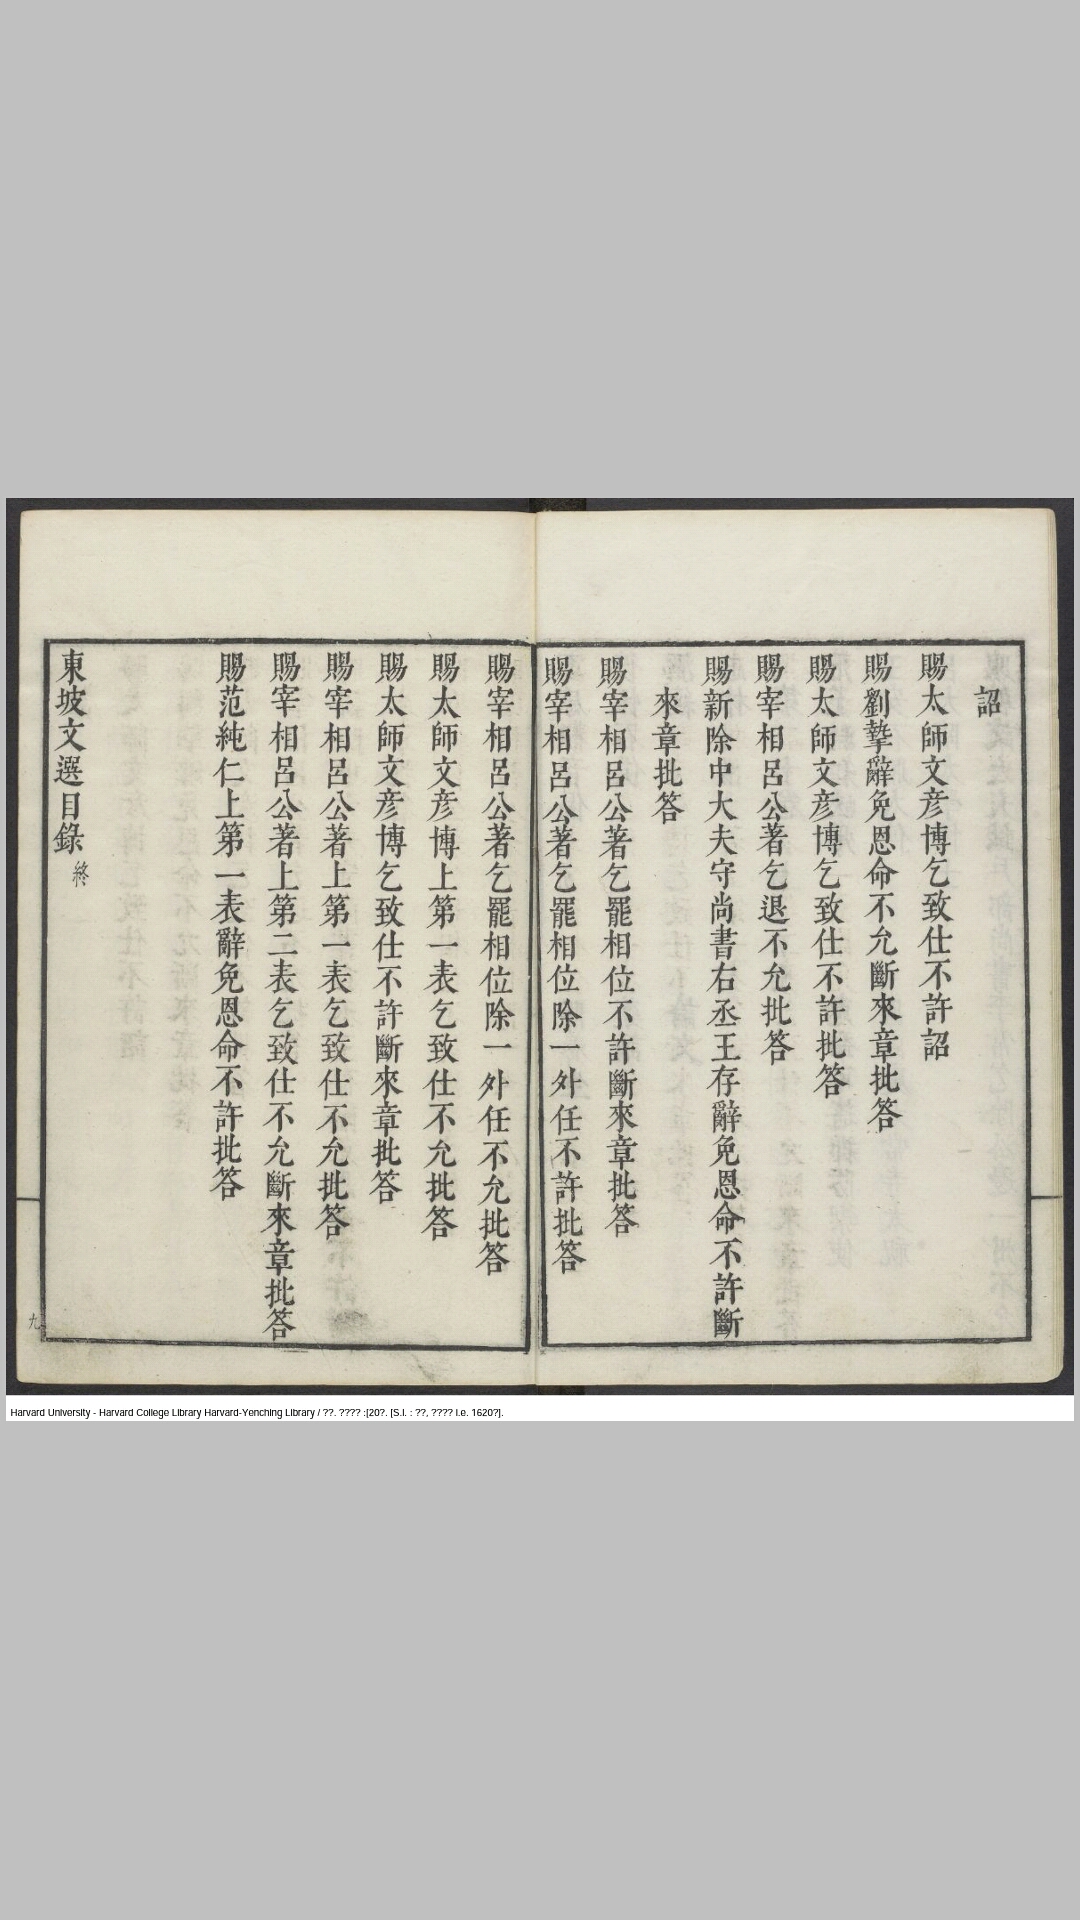 詔
賜太師文彦博乞致仕不許詔
賜劉摯辭免恩命不允斷來章批答
賜太師文彦博乞致仕不許批答
賜宰相呂公著乞退不允批答
賜新除中大夫守尚書右丞王存辭免恩命不許斷
來章批答
賜宰相呂公著乞罷相位不許斷來章批答
賜宰相呂公著乞罷相位除一外任不許批答
賜宰相呂公著乞罷相位除一外任不允批答
賜太師文彦博上第一表乞致仕不允批答
賜太師文彦博乞致仕不許斷來章批答
賜宰相呂公著上第一表乞致仕不允批答
賜宰相呂公著上第二表乞致仕不允斷來章批答
賜范純仁上第一表辭免恩命不許批答
東坡文選目錄終
九
Harvard University - Harvard College Library Harvard-Yenching Library / ??. ???? :[20?. [S.l. : ??, ???? i.e. 1620?].